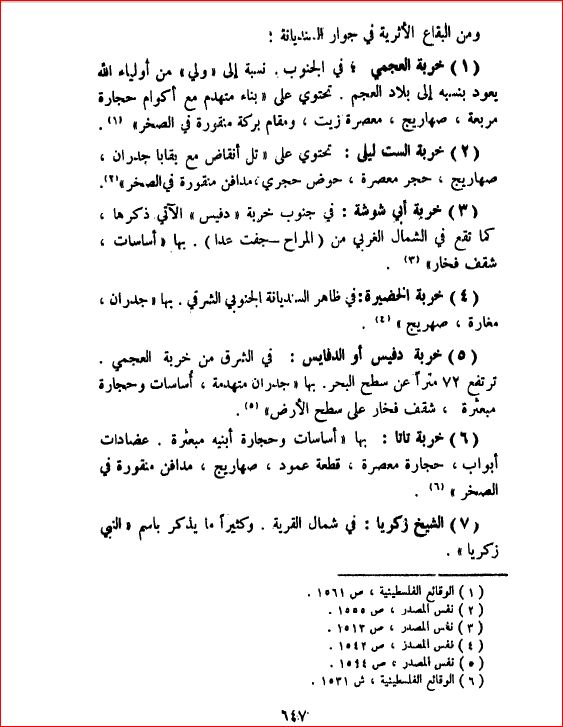 ومن البقاع الأثرية في جوار السنديانة :
(١) خربة العجمي : في الجنوب . نسبة إلى «ولي» من أولياء الله
يعود بنسبه إلى بلاد العجم . تحتوي على «بناء متهدم مع أكوام حجارة
مربعة ، صهاريج ، معصرة زيت ، ومقام بركة منقورة في الصخر» (١) .
(٢) خربة الست ليلى : تحتوي على «تل أنقاض مع بقايا جدران ،
صهاريج ، حجر معصرة ، حوض حجري ، مدافن منقورة في الصخر» (٢).
(٣) خربة أبي شوشة : في جنوب خربة «دفيس» الآتي ذكرها ،
كما تقع في الشمال الغربي من (المراح – جفت عدا) . بها «أساسات ،
شقف فخار» (٣) .
(٤) خربة الخضيرة : في ظاهر السنديانة الجنوبي الشرقي . بها «جدران ،
مغارة ، صهريج» (٤) .
(٥) خربة دفيس أو الدفايس : في الشرق من خربة العجمي .
ترتفع ٧٢ متراً عن سطح البحر. بها «جدران متهدمة ، أساسات وحجارة
مبعثرة ، شقف فخار على سطح الأرض» (٥) .
(٦) خربة تاتا : بها «أساسات وحجارة أبنيه مبعثرة . عضادات
أبواب ، حجارة معصرة ، قطعة عمود ، صهاريج ، مدافن منقورة في
الصخر» (٦) .
(٧) الشيخ زكريا : في شمال القرية . وكثيراً ما يذكر باسم «النبي
زكريا» .
(١) الوقائع الفلسطينية ، ص ١٥٦١ .
(٢) نفس المصدر ، ص ١٥٥٥ .
(٣) نفس المصدر ، ص ١٥١٣ .
(٤) نفس المصدر ، ص ١٥٤٢ .
(٥) نفس المصدر ، ص ١٥٤٤ .
(٦) الوقائع الفلسطينية ، ش ١٥٣١ .
٦٤٧